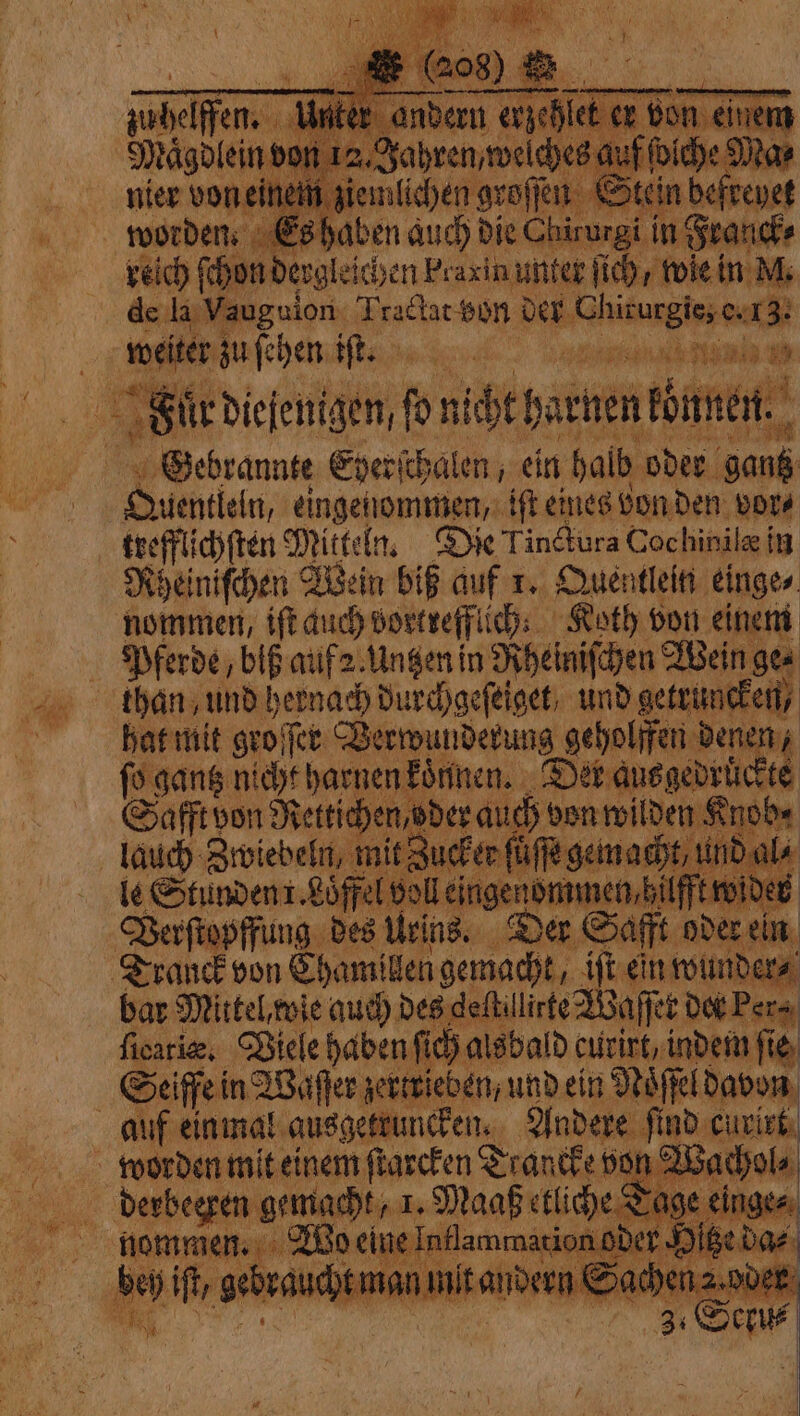 (208)
zuhelffen. Unter andern erzehlet er von einem
Mägdlein von 12. Jahren, welches auf solche Ma-
nier von einem ziemlichen grossen Stein befreyet
worden. Es haben auch die Chirurgi in Franck-
reich schon dergleichen Praxin unter sich, wie in M.
de la Vauguion Tractat von der Chirurgie, c. 13.
weiter zu sehen ist.
Für diejenigen, so nicht harnen können.
Gebrannte Eyerschalen, ein halb oder gantz
Quentlein, eingenommen, ist eines von den vor-
trefflichsten Mitteln. Die Tinctura Cochinilæ in
Rheinischen Wein biß auf 1. Quentlein einge-
nommen, ist auch vortrefflich. Koth von einem
Pferde, biß auf 2. Untzen in Rheinischen Wein ge-
than, und hernach durchgeseiget, und getruncken,
hat mit grosser Verwunderung geholffen denen,
so gantz nicht harnen können. Der ausgedrückte
Safft von Rettichen, oder auch von wilden Knob-
lauch Zwiebeln, mit Zucker süsse gemacht, und al-
le Stunden 1. Löffel voll eingenommen, hilfft wider
Verstopffung des Urins. Der Safft oder ein
Tranck von Chamillen gemacht, ist ein wunder-
bar Mittel, wie auch des destillirte Wasser der Per-
sicariæ. Viele haben sich alsbald curirt, indem sie
Seiffe in Wasser zertrieben, und ein Nössel davon
auf einmal ausgetruncken. Andere sind curirt
worden mit einem starcken Trancke von Wachol-
derbeeren gemacht, 1. Maaß etliche Tage einge-
nommen. Wo eine Inflammation oder Hitze da-
bey ist, gebraucht man mit andern Sachen 2. oder
3. Scru-